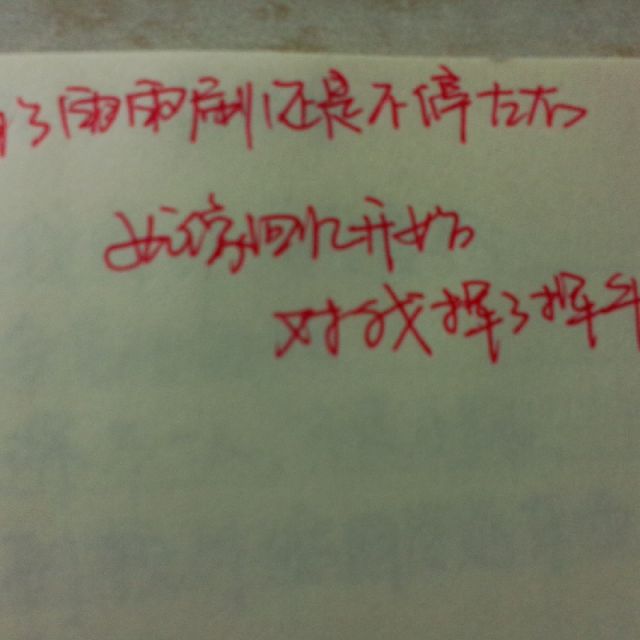 了雨雨刷还是不停左右
好像回忆开始
对我挥了挥手